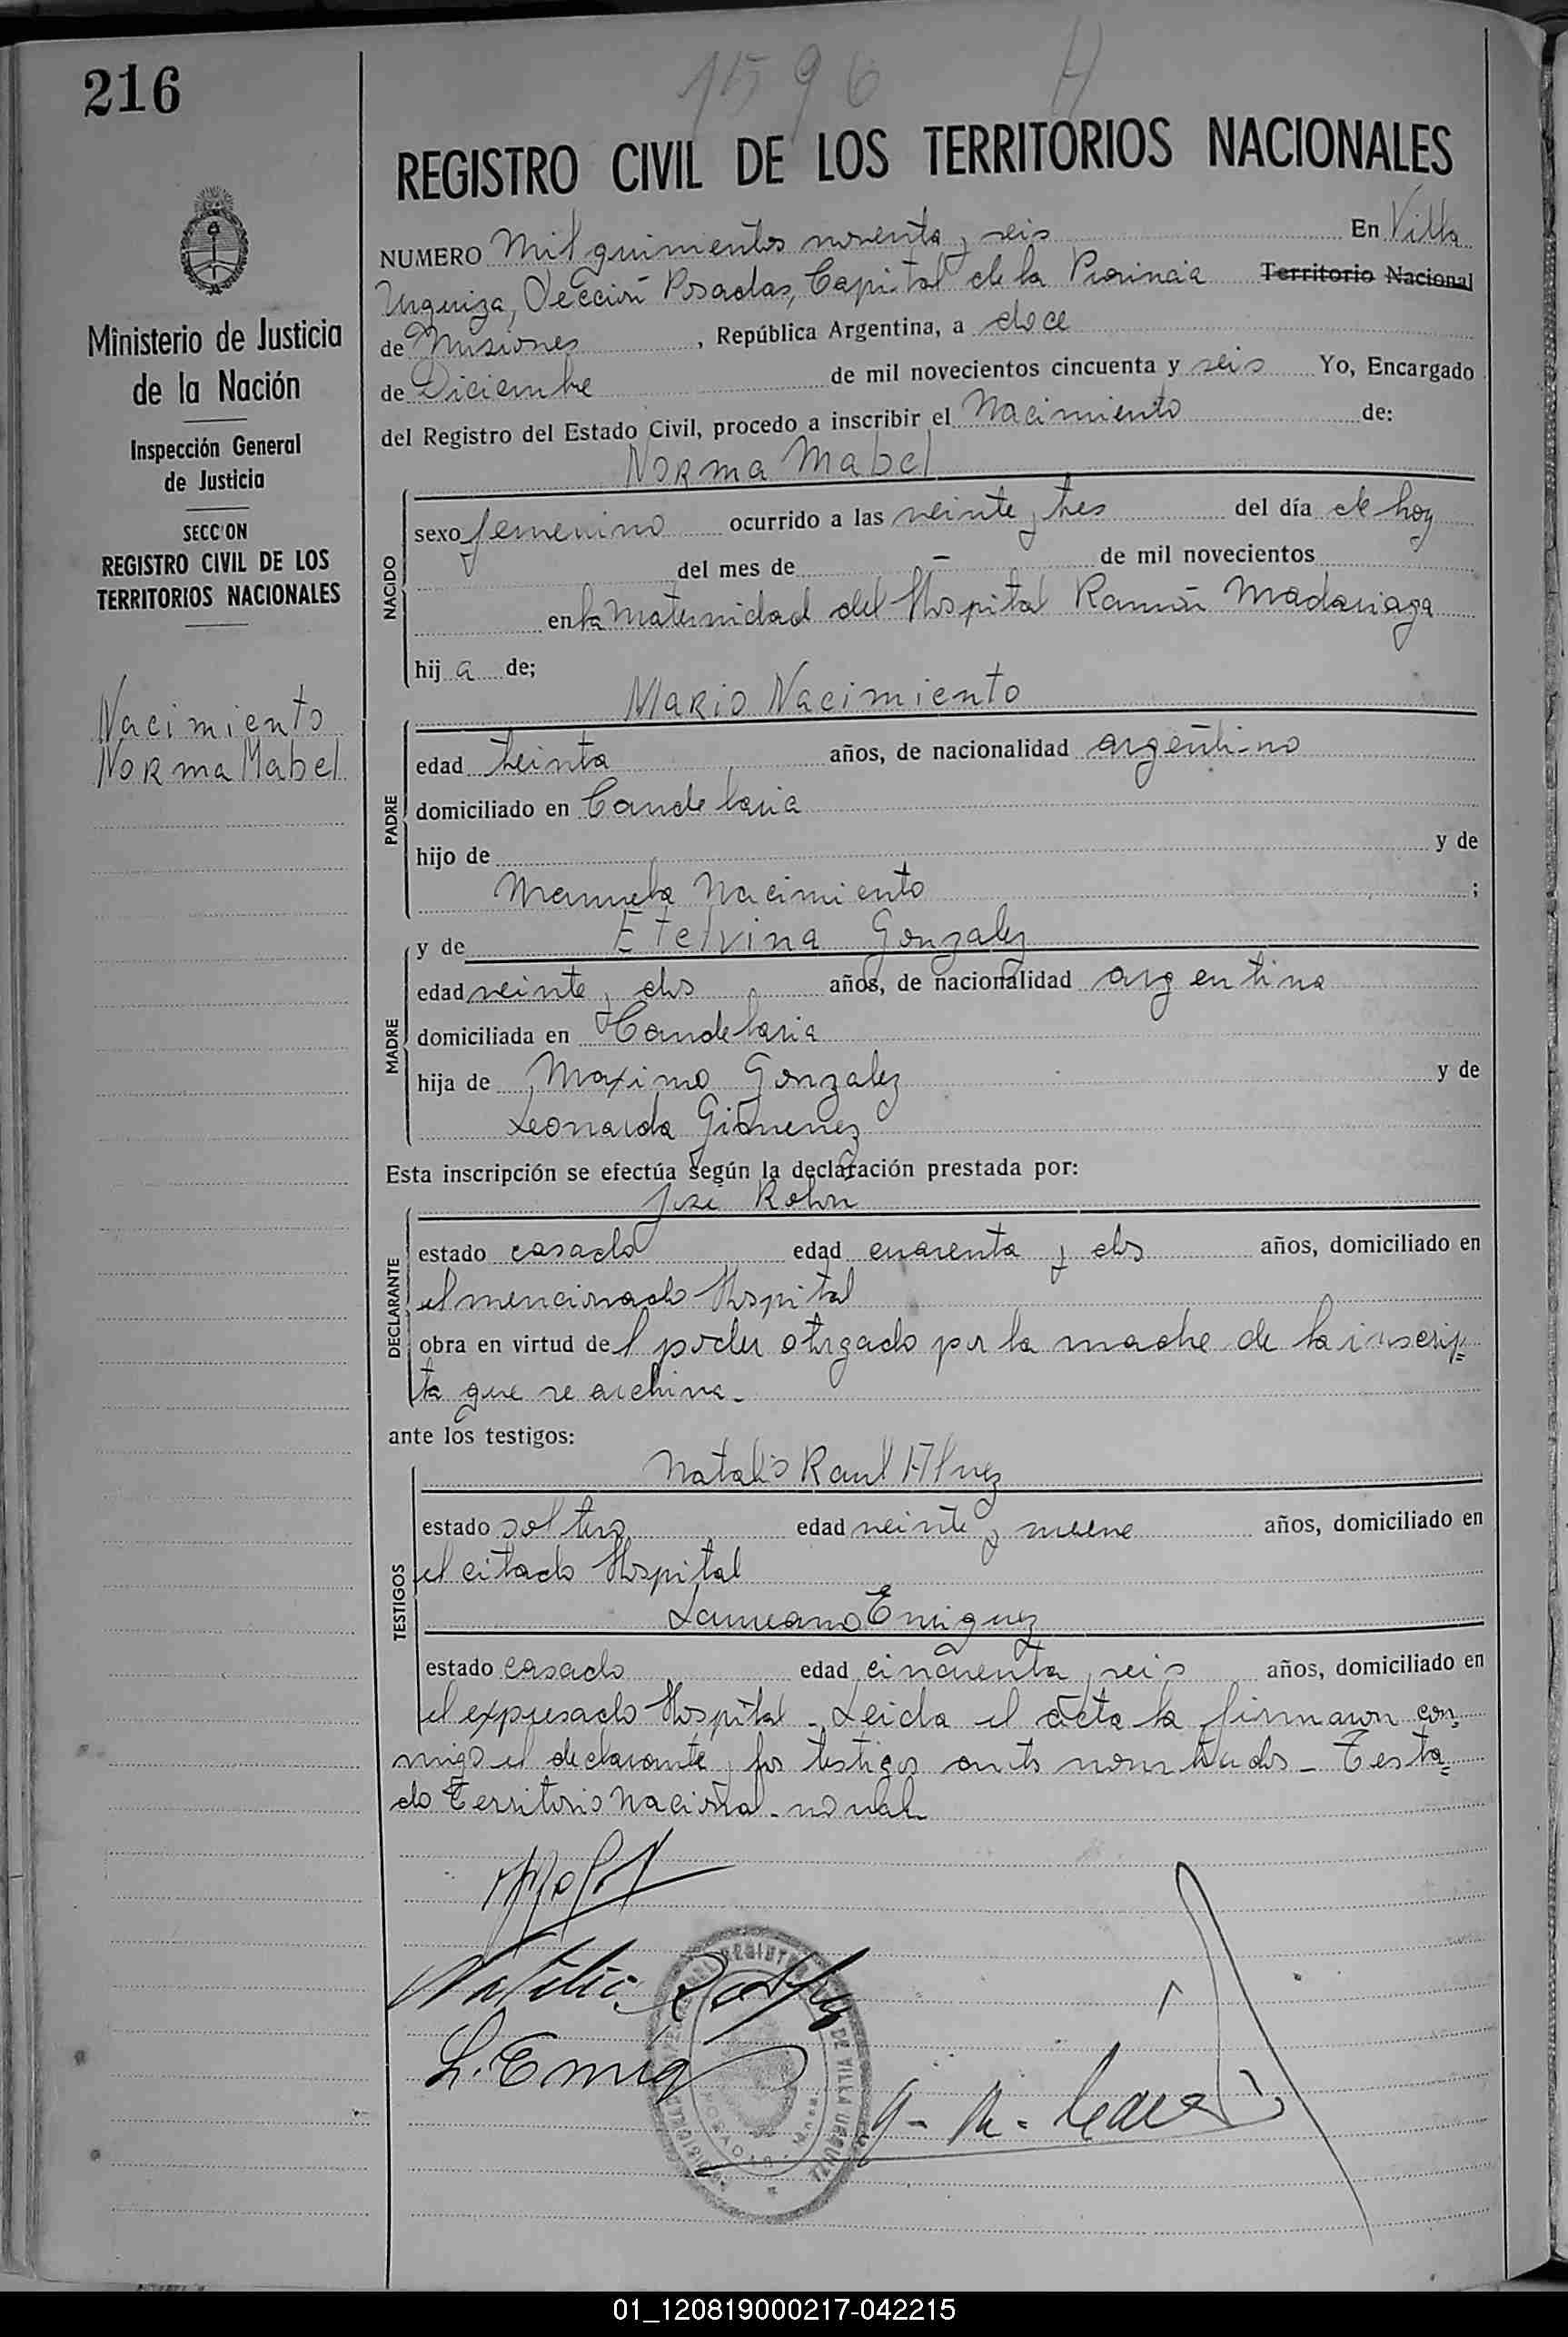 216
1596 H
REGISTRO CIVIL DE LOS TERRITORIOS NACIONALES
Ministerio de Justicia
de la Nación
Inspección General
de Justicia
SECC'ON
REGISTRO CIVIL DE LOS
TERRITORIOS NACIONALES
Nacimiento
Norma Mabel
NUMERO Mil quinientos noventa y seis En Villa
Urquiza, Sección Posadas, Capital de la Provincia Territorio Nacional
de Misiones, República Argentina, a doce
de Diciembre de mil novecientos cincuenta y seis Yo, Encargado
del Registro del Estado Civil, procedo a inscribir el Nacimiento de:
Norma Mabel
NACIDO
sexo femenino ocurrido a las veinte y tres del día de hoy
del mes de – de mil novecientos
en la Maternidad del Hospital Ramón Madariaga
hija de;
Mario Nacimiento
PADRE
edad treinta años, de nacionalidad argentino
domiciliado en Candelaria
hijo de y de
Manuela Nacimiento ;
y de Etelvina Gonzalez
MADRE
edad veinte y dos años, de nacionalidad argentina
domiciliada en Candelaria
hija de Maximo Gonzalez y de
Leonarda Gimenez
Esta inscripción se efectúa según la declaración prestada por:
José Rohn
DECLARANTE
estado casado edad cuarenta y dos años, domiciliado en
el mencionado Hospital
obra en virtud del poder otorgado por la madre de la inscrip=
ta que se archiva.-
ante los testigos:
Natalio Raul
TESTIGOS
estado soltero edad veinte y nueve años, domiciliado en
el citado Hospital
Laureano Enriquez
estado casado edad cincuenta y seis años, domiciliado en
el expresado Hospital - Leida el acta la firmaron con=
migo el declarante y los testigos ants nombrados - Testa=
do Territorio Nacional - no vale
L. Enriq
REGISTRO DE VILLA URQUIZA
01_120819000217-042215